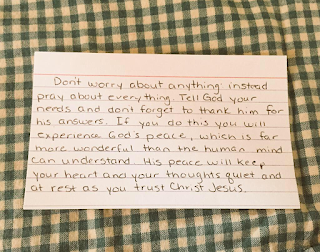 Don't worry about anything: instead
pray about everything. Tell God your
needs and dont forget to thank him for
his answers. If you do this you will
experience God's peace, which is far
more wonderful than the human mind
can understand. His peace will keep
your heart and your thoughts quiet and
at rest as you trust Christ Jesus.